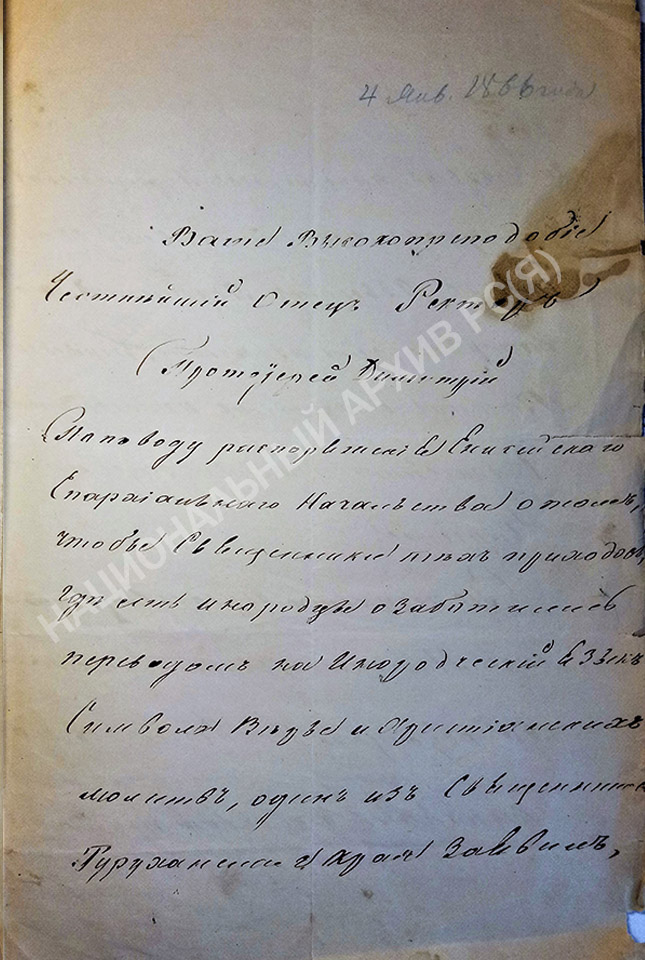 4 Янв. 1866 года
Ваше Высокопреподобіе
Честнѣйшій Отецъ Ректоръ
Протоіерей Димитрій
По поводу распоряженіе Енисейского
Епархіальнаго Начальства о томъ,
чтобы Священники тѣхъ приходовъ,
гдѣ есть инородцы озаботились
переводомъ на Инородческій Языкъ
Символа Вѣры и Христіянскихъ
молитвъ, одинъ изъ Священник
Туруханскаго края заявилъ,
НАЦИОНАЛЬНЫЙ АРХИВ РС(Я)